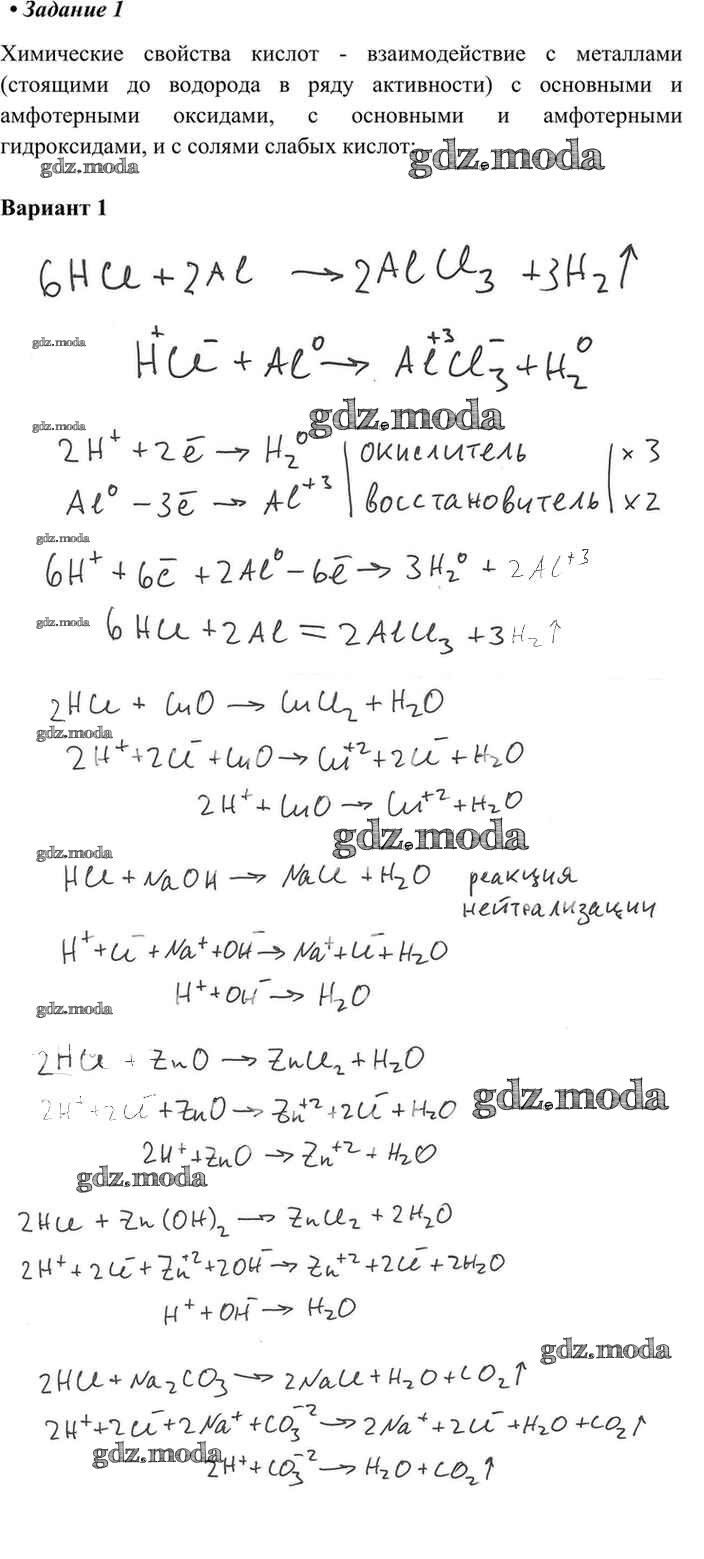 • Задание 1
Химические свойства кислот - взаимодействие с металлами
(стоящими до водорода в ряду активности) с основными и
амфотерными оксидами, с основными и амфотерными
гидроксидами, и с солями слабых кислот:
gdz.moda gdz.moda
Вариант 1
6HCl + 2Al → 2AlCl₃ + 3H₂↑
gdz.moda
H⁺Cl⁻ + Al⁰ → Al⁺³Cl₃⁻ + H₂⁰
gdz.moda
gdz.moda
2H⁺ + 2ē → H₂⁰ | окислитель | × 3
Al⁰ − 3ē → Al⁺³ | восстановитель | × 2
gdz.moda
6H⁺ + 6ē + 2Al⁰ − 6ē → 3H₂⁰ + 2Al⁺³
gdz.moda
6HCl + 2Al = 2AlCl₃ + 3H₂↑
2HCl + CuO → CuCl₂ + H₂O
gdz.moda
2H⁺ + 2Cl⁻ + CuO → Cu⁺² + 2Cl⁻ + H₂O
2H⁺ + CuO → Cu⁺² + H₂O
gdz.moda
gdz.moda
HCl + NaOH → NaCl + H₂O реакция
нейтрализации
H⁺ + Cl⁻ + Na⁺ + OH⁻ → Na⁺ + Cl⁻ + H₂O
H⁺ + OH⁻ → H₂O
gdz.moda
2HCl + ZnO → ZnCl₂ + H₂O
2H⁺ + 2Cl⁻ + ZnO → Zn⁺² + 2Cl⁻ + H₂O
gdz.moda
2H⁺ + ZnO → Zn⁺² + H₂O
gdz.moda
2HCl + Zn(OH)₂ → ZnCl₂ + 2H₂O
2H⁺ + 2Cl⁻ + Zn⁺² + 2OH⁻ → Zn⁺² + 2Cl⁻ + 2H₂O
H⁺ + OH⁻ → H₂O
gdz.moda
2HCl + Na₂CO₃ → 2NaCl + H₂O + CO₂↑
2H⁺ + 2Cl⁻ + 2Na⁺ + CO₃⁻² → 2Na⁺ + 2Cl⁻ + H₂O + CO₂↑
gdz.moda
2H⁺ + CO₃⁻² → H₂O + CO₂↑